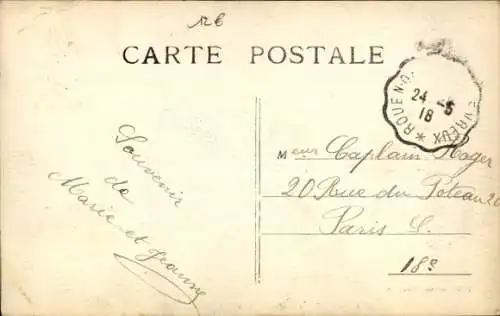 CARTE POSTALE
ROUEN-O. EVREUX *
24 -5
18
Souvenir
de
Marie et Jeanne
Meur Caplain Roger
20 Rue du Poteau 20
Paris
18e